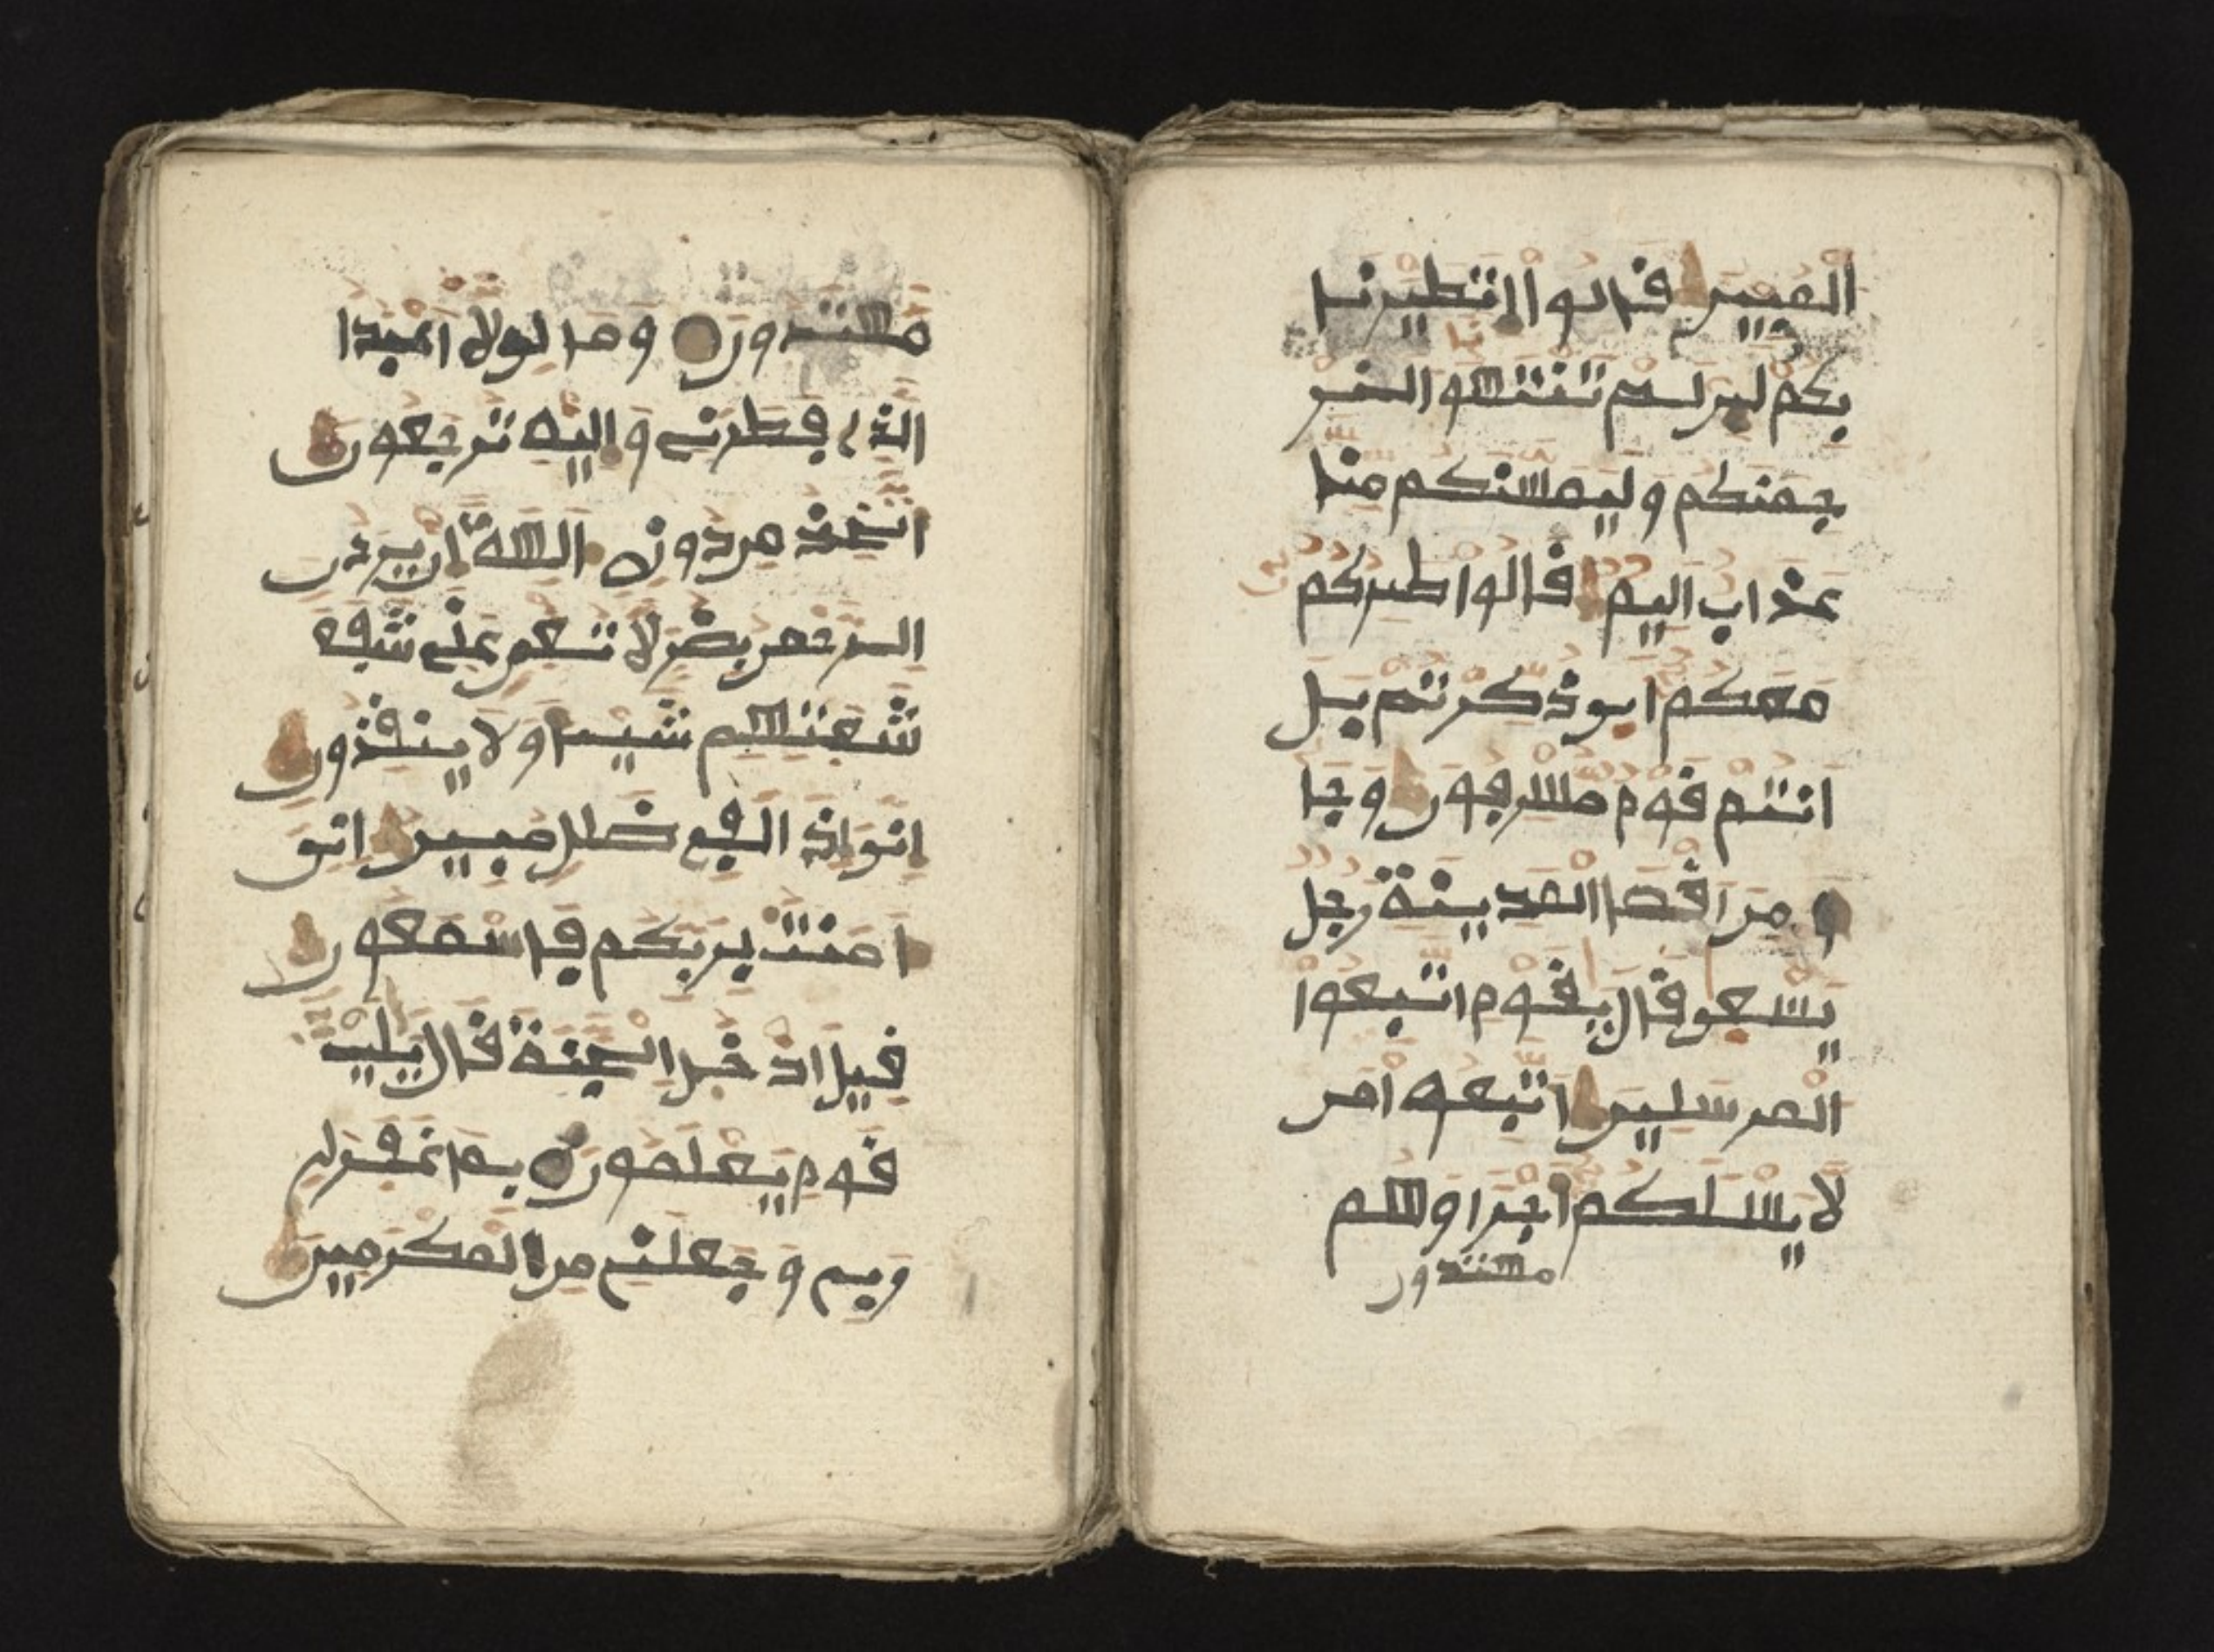 المبين قالوا انا تطيرنا
بكم لين لم تنتهوا لنر
جمنكم وليمسنكم منا
عذاب اليم قالوا طيركم
معكم اين ذكرتم بل
انتم قوم مسرفون وجا
من اقصا المدينة رجل
يسعى قال يقوم اتبعوا
المرسلين اتبعوا من
لا يسلكم اجرا وهم
مهتدون
مهتدون وما لي لا اعبد
الذي فطرني واليه ترجعون
اتخذ من دونه الهة ان يردن
الرحمن بضر لا تغن عني
شفعتهم شيا ولا ينقذون
اني اذا لفي ضلل مبين اني
امنت بربكم فاسمعون
قيل ادخل الجنة قال يليت
قوم يعلمون بما غفر لي
ربي وجعلني من المكرمين